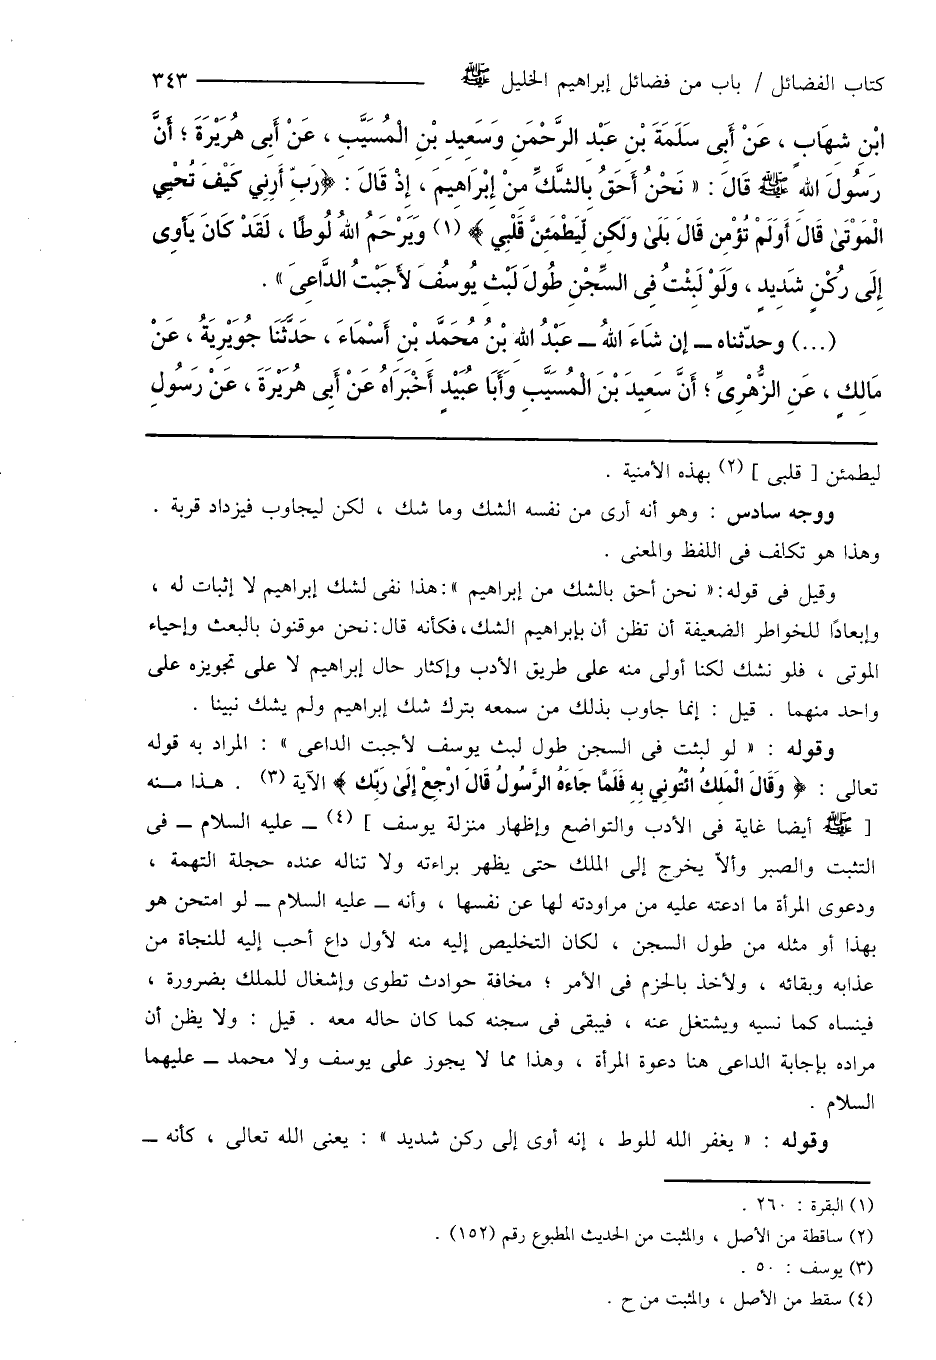 كتاب الفضائل / باب من فضائل إبراهيم الخليل ﷺ ـــــــ ٣٤٣
ابْنِ شِهَابٍ ، عَنْ أَبِى سَلَمَةَ بْنِ عَبْدِ الرَّحْمَنِ وَسَعِيدِ بْنِ الْمُسَيَّبِ ، عَنْ أَبِى هُرَيْرَةَ ؛ أَنَّ
رَسُولَ اللهِ ﷺ قَالَ : « نَحْنُ أَحَقُّ بِالشَّكِّ مِنْ إِبْرَاهِيمَ ، إِذْ قَالَ : ﴿رَبِّ أَرِنِي كَيْفَ تُحْيِي
الْمَوْتَىٰ قَالَ أَوَلَمْ تُؤْمِن قَالَ بَلَىٰ وَلَكِن لِّيَطْمَئِنَّ قَلْبِي ﴾ (١) وَيَرْحَمُ اللهُ لُوطًا ، لَقَدْ كَانَ يَأْوِى
إِلَى رُكْنٍ شَدِيدٍ ، وَلَوْ لَبِثْتُ فِى السِّجْنِ طُولَ لَبْثِ يُوسُفَ لأَجَبْتُ الدَّاعِىَ » .
(...) وحدّثناه ــ إن شَاءَ اللهُ ــ عَبْدُ اللهِ بْنُ مُحَمَّدِ بْنِ أَسْمَاءَ ، حَدَّثَنَا جُوَيْرِيَةُ ، عَنْ
مَالِكٍ ، عَنِ الزُّهْرِىِّ ؛ أَنَّ سَعِيدَ بْنَ الْمُسَيَّبِ وَأَبَا عُبَيْدٍ أَخْبَرَاهُ عَنْ أَبِى هُرَيْرَةَ ، عَنْ رَسُولِ
ليطمئن [ قلبى ] (٢) بهذه الأمنية .
ووجه سادس : وهو أنه أرى من نفسه الشك وما شك ، لكن ليجاوب فيزداد قربة .
وهذا هو تكلف فى اللفظ والمعنى .
وقيل فى قوله:« نحن أحق بالشك من إبراهيم »:هذا نفى لشك إبراهيم لا إثبات له ،
وإبعادًا للخواطر الضعيفة أن تظن أن بإبراهيم الشك،فكأنه قال:نحن موقنون بالبعث وإحياء
الموتى ، فلو نشك لكنا أولى منه على طريق الأدب وإكثار حال إبراهيم لا على تجويزه على
واحد منهما . قيل : إنما جاوب بذلك من سمعه بترك شك إبراهيم ولم يشك نبينا .
وقوله : « لو لبثت فى السجن طول لبث يوسف لأجبت الداعى » : المراد به قوله
تعالى : ﴿ وَقَالَ الْمَلِكُ ائْتُونِي بِهِ فَلَمَّا جَاءَهُ الرَّسُولُ قَالَ ارْجِعْ إِلَىٰ رَبِّكَ ﴾ الآية (٣) . هـذا مـنـه
[ ﷺ أيضا غاية فى الأدب والتواضع وإظهار منزلة يوسف ] (٤) ــ عليه السلام ــ فى
التثبت والصبر وألاّ يخرج إلى الملك حتى يظهر براءته ولا تناله عنده حجلة التهمة ،
ودعوى المرأة ما ادعته عليه من مراودته لها عن نفسها ، وأنه ــ عليه السلام ــ لو امتحن هو
بهذا أو مثله من طول السجن ، لكان التخليص إليه منه لأول داع أحب إليه للنجاة من
عذابه وبقائه ، ولأخذ بالحزم فى الأمر ؛ مخافة حوادث تطوى وإشغال للملك بضرورة ،
فينساه كما نسيه ويشتغل عنه ، فيبقى فى سجنه كما كان حاله معه . قيل : ولا يظن أن
مراده بإجابة الداعى هنا دعوة المرأة ، وهذا مما لا يجوز على يوسف ولا محمد ــ عليهما
السلام .
وقوله : « يغفر الله للوط ، إنه أوى إلى ركن شديد » : يعنى الله تعالى ، كأنه ــ
(١) البقرة : ٢٦٠ .
(٢) ساقطة من الأصل ، والمثبت من الحديث المطبوع رقم (١٥٢) .
(٣) يوسف : ٥٠ .
(٤) سقط من الأصل ، والمثبت من ح .